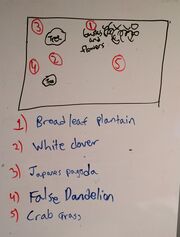 3
1
Tree
bushes
and
flowers
4
2
5
Tree
1) Broad leaf plantain
2) White clover
3) Japanes pagoda
4) False Dandelion
5) Crab Grass